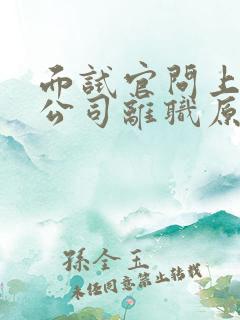 面試官問上
公司離職原
孫全玉
未經同意禁止轉載